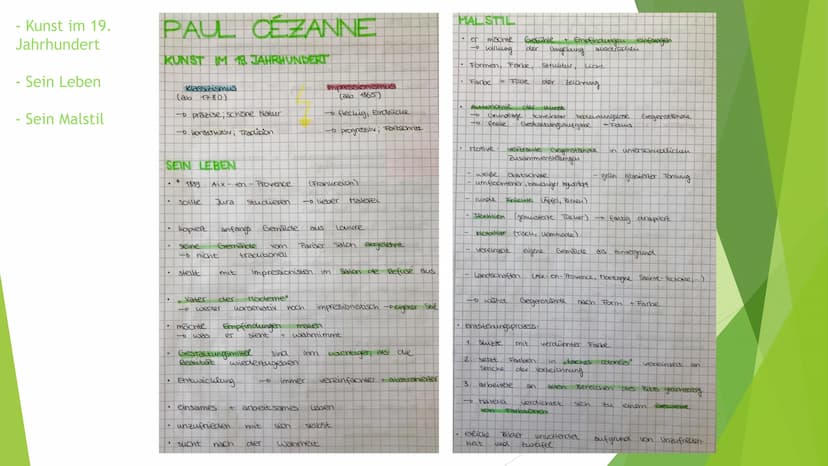 - Kunst im 19.
Jahrhundert
- Sein Leben
- Sein Malstil
PAUL CÉZANNE
KUNST IM 19. JAHRHUNDERT
Klassizismus
(ab 1780)
→ präzise, schöne Natur
→ konservativ, Tradition
Impressionismus
(ab 1865)
→ fleckig, Eindrücke
→ progressiv, Fortschritt
SEIN LEBEN
• * 1839 Aix-en-Provence (Frankreich)
• sollte Jura studieren → lieber Malerei
• kopiert anfangs Gemälde aus Louvre
• seine Gemälde vom Pariser Salon abgelehnt
→ nicht traditionell
• stellt mit Impressionisten im Salon de Refusé aus
• "Vater der Moderne"
→ weder konservativ noch impressionistisch → eigener Stil
• möchte Empfindungen malen
→ was er sieht + wahrnimmt
• Gestaltungsmittel sind ihm wichtiger, als die
Realität wiederzugeben
• Entwicklung → immer vereinfachter + abstrahierter
• einsames + arbeitsames Leben
• unzufrieden mit sich selbst
• sucht nach der Wahrheit
MALSTIL
• er möchte Gefühle + Empfindungen einfangen
→ Wirkung der Umgebung ausdrücken
• Formen, Farbe, Struktur, Licht
• Farbe = Fülle der Zeichnung
• Autonomie der Kunst
→ Gegenstände
→ freie
• Motive: Gegenstände in unterschiedlichen
Zusammenstellungen
- weiße Obstschale
- grün glasierter
- runde Früchte (Äpfel, Birnen)
- Textilien (gemusterte Tücher) → farbig
- Mobiliar (Tisch, Kommode)
- vereinzelt eigene Gemälde als Hintergrund
- Landschaften (Aix-en-Provence, Montagne Sainte-Victoire, ..)
→ wählt Gegenstände nach Form + Farbe
• Entstehungsprozess:
1. Skizze mit verdünnter Farbe
2. setzt Farben in vereinzelt an
Stelle der Vorzeichnung
3. arbeitete an allen Bereichen des Bilds gleichzeitig
→ Malerei verdichtet sich zu einem
von Farbflächen
• etliche Bilder unvollendet aufgrund von Unzufrieden-
heit und Zweifel